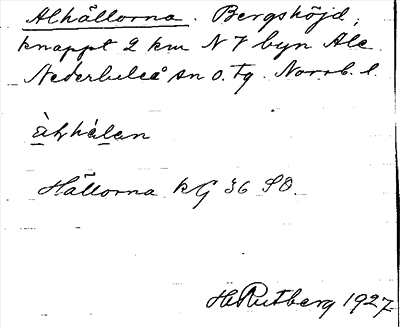 Alhällorna. Bergshöjd,
knappt 2 km N f byn Ale
Nederluleå sn o. tg. Norrb. l.
àlhä́lan
Hällorna kG 36 SO.
H Rutberg 1927